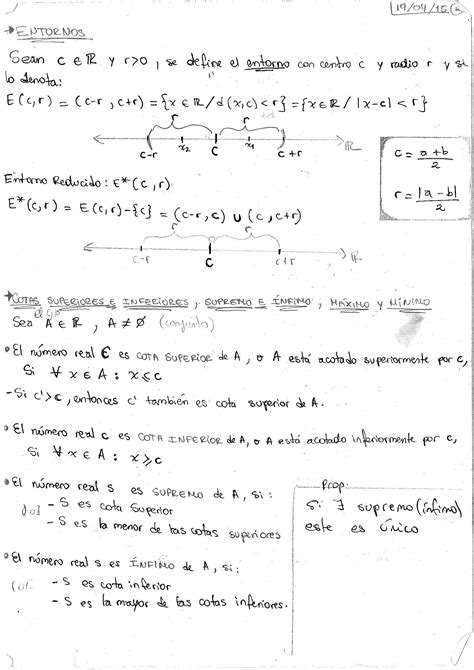 19/04/15
→ENTORNOS
Sean c ∈ ℝ y r>0, se define el entorno con centro c y radio r y se
lo denota:
E(c,r) = (c-r, c+r) = {x ∈ ℝ / d(x,c) < r} = {x ∈ ℝ / |x-c| < r}
r r
c-r x₂ c x₁ c+r ℝ
c = a+b / 2
r = |a-b| / 2
Entorno Reducido: E*(c,r)
E*(c,r) = E(c,r)-{c} = (c-r, c) ∪ (c, c+r)
r r
c-r c c+r ℝ
→COTAS SUPERIORES E INFERIORES, SUPREMO E ÍNFIMO, MÁXIMO y MÍNIMO
Sea A ∈ ℝ, A ≠ ∅ (conjunto)
• El número real c es COTA SUPERIOR de A, o A está acotado superiormente por c,
Si ∀ x ∈ A : x ≤ c
- Si c'>c, entonces c' también es cota superior de A.
• El número real c es COTA INFERIOR de A, o A está acotado inferiormente por c,
Si ∀ x ∈ A : x ≥ c
• El número real s es SUPREMO de A, si:
- S es cota Superior
- S es la menor de las cotas superiores
Prop:
Si ∃ supremo (ínfimo)
este es único
• El número real s es ÍNFIMO de A, si:
- S es cota inferior
- S es la mayor de las cotas inferiores.